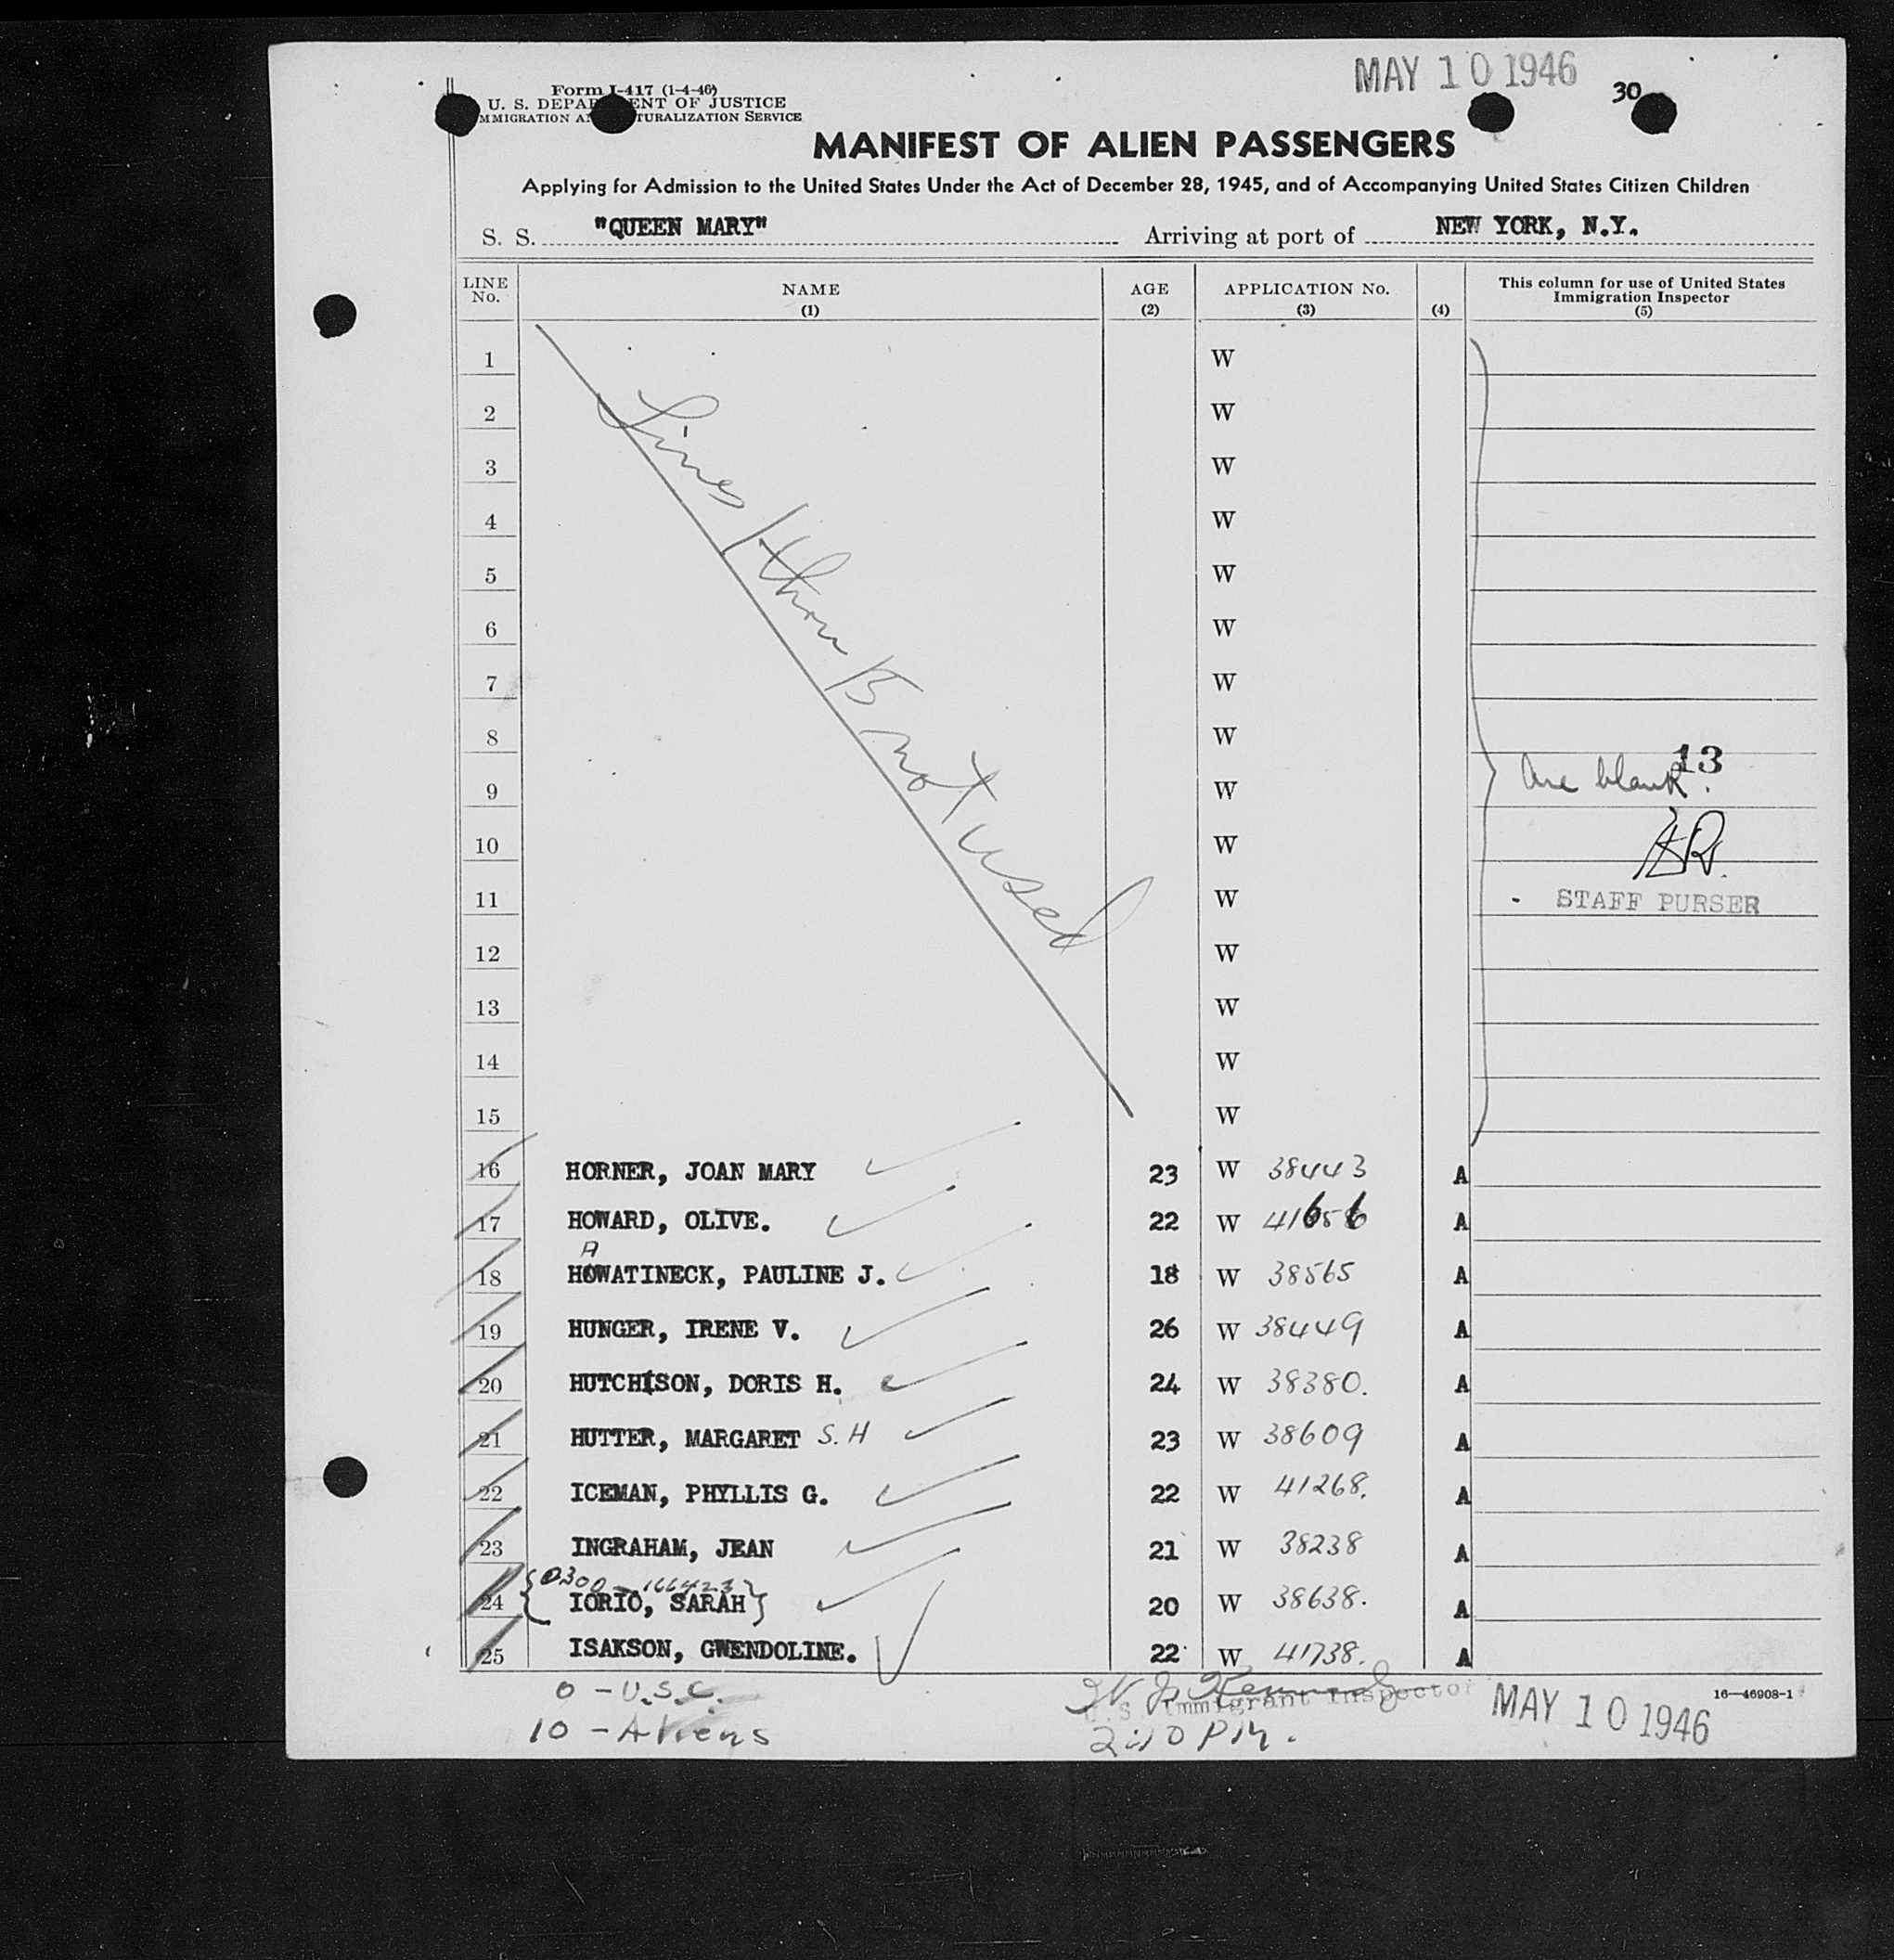 MAY 10 1946
30
Form I-417 (1-4-46)
U. S. DEPA ENT OF JUSTICE
MMIGRATION A TURALIZATION SERVICE
MANIFEST OF ALIEN PASSENGERS
Applying for Admission to the United States Under the Act of December 28, 1945, and of Accompanying United States Citizen Children
S. S. "QUEEN MARY" Arriving at port of NEW YORK, N.Y.
LINE No. NAME (1) AGE (2) APPLICATION No. (3) (4) This column for use of United States Immigration Inspector (5)
1 W
2 W
3 W
4 W
5 W
6 W
7 W
8 W
9 W
10 W
11 W
12 W
13 W
14 W
15 W
Lines 1 thru 15 not used
13
are blank.
STAFF PURSER
16 HORNER, JOAN MARY 23 W 38443 A
17 HOWARD, OLIVE. 22 W 41656 A
A
18 HOWATINECK, PAULINE J. 18 W 38565 A
19 HUNGER, IRENE V. 26 W 38449 A
20 HUTCHISON, DORIS H. 24 W 38380. A
21 HUTTER, MARGARET S. H 23 W 38609 A
22 ICEMAN, PHYLLIS G. 22 W 41268. A
23 INGRAHAM, JEAN 21 W 38238 A
0300-166423
24 {IORIO, SARAH} 20 W 38638. A
25 ISAKSON, GWENDOLINE. 22 W 41738. A
0 - U.S.C.
10 - Aliens
U.S. Immigrant Inspector
2:10 PM.
MAY 10 1946
16—46908-1